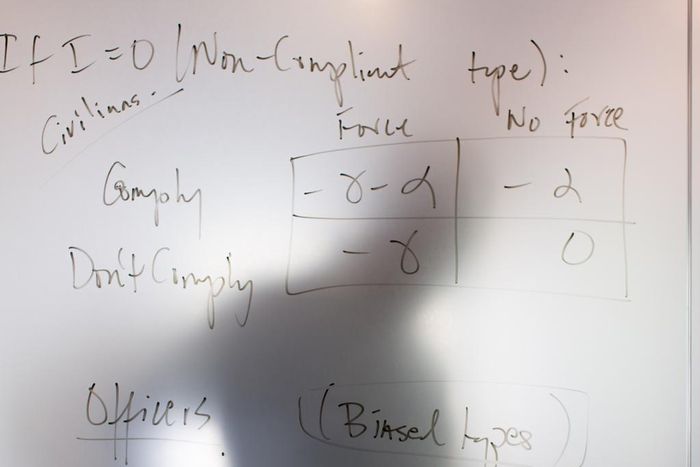 If I = 0 (Non-Compliant type):
Civilians.
Force No Force
Comply - γ - α - α
Don't Comply - γ 0
Officers. ((Biased types)